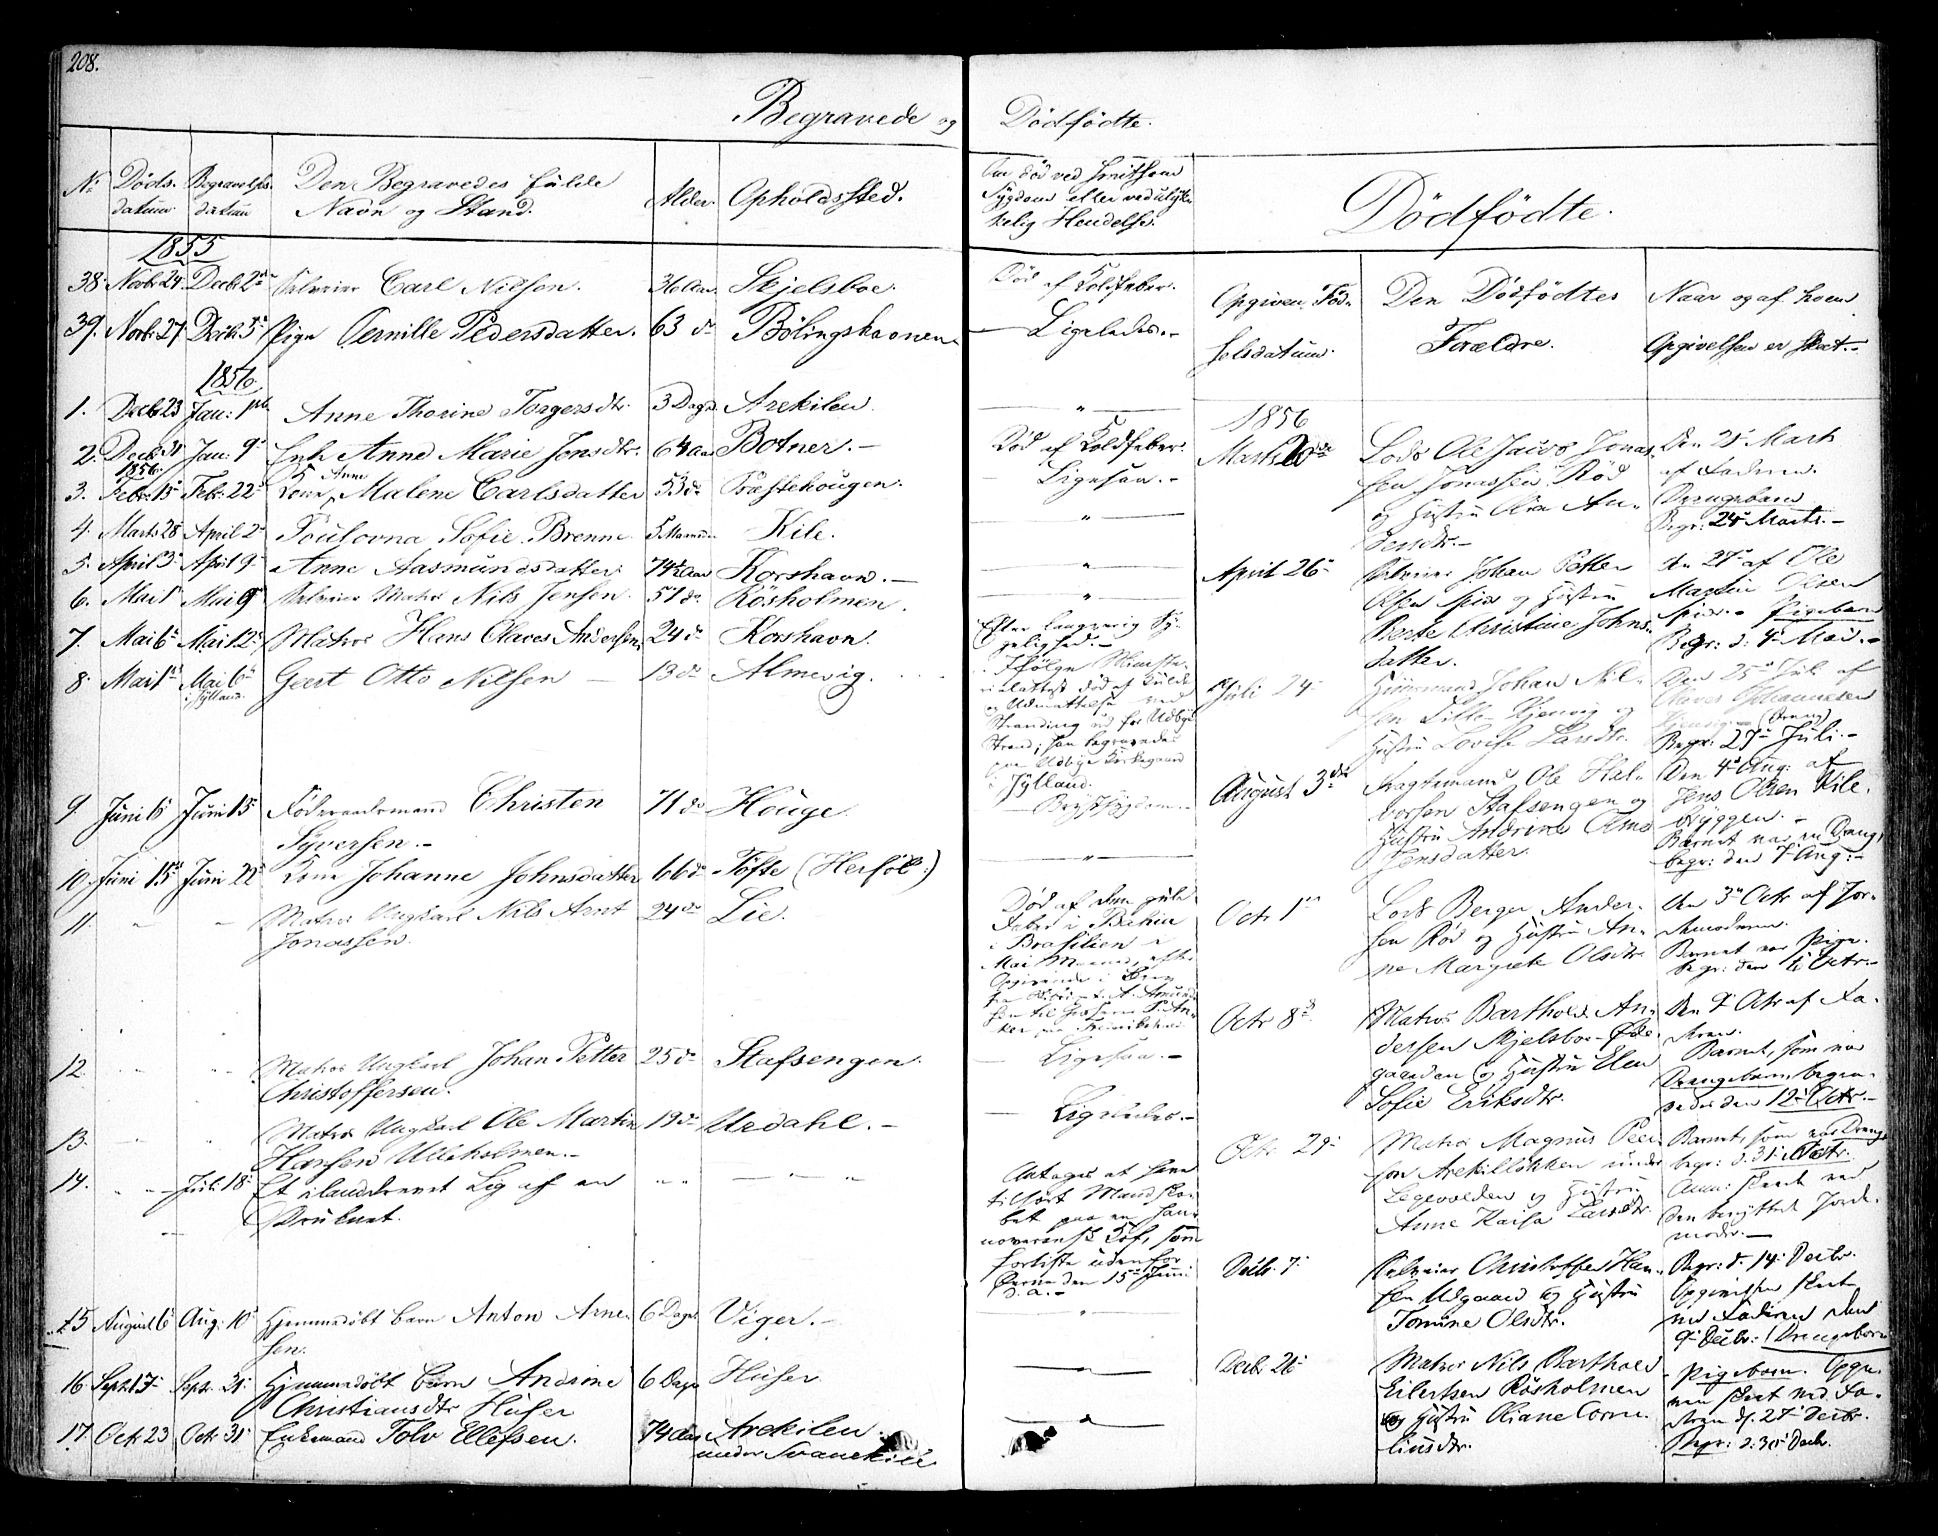 208.
Begravede og Dödfödte.
No Döds- datum. Begravelses- datum Den Begravedes fulde Navn og Stand. Alder. Opholdssted.
Om död ved smitsom Sygdom eller ved ulykkelig Hendelse.
Dödfödte.
1855
38. Novbr 24. Decbr 2 Carl Nilsen. 36 Aar Skjelsboe. Död af Koldfeber.
39. Novbr 27 Decbr 5 Pige Pernille Pedersdatter. 63 do Bölingshavnen Ligeledes.-
1856
1. Decbr 23 Jan: 1 Anne Thorine Torgersdtr. 3 Dage Arekilen. "
2. Decbr 31 Jan: 9 Enke Anne Marie Jonsdtr. 64 Aar Botner.- Död af Koldfeber.
1856.
3. Febr: 15 Febr. 22 Kone Anne Malene Carlsdatter 53 do Præstehougen. Ligesaa.-
4. Marts 28 April 2 Poulovna Sofie Brenne 5 Maaneder Kile. "
5. April 3 April 9 Anne Aasmundsdatter. 74½ Aar Korshavn.- "
6. Mai 1 Mai 9 Nils Jensen. 51 do Rösholmen. "
7. Mai 6 Mai 12 Matros Hans Olaves Andersen 24 do Korshavn. Efter langvarig Sygelighed.-
8. Mai 1 Mai 6 i Jylland. Gert Otto Nilsen - 13 do Almevig.
Ifölge Ministerialattest död af Kulde
og Udmattelse ved
Stranding ud for Udbye
Strand; han begravedes
paa Udbye Kirkegaard
i Jylland.
9. Juni 6 Juni 15 Föderaadsmand Christen
Syversen.- 71 do Houge. Brystsygdom.-
10. Juni 15 Juni 22 Kone Johanne Johnsdatter 66 do Tofte (Herföl.) "
11. " " Matros Ungkarl Nils Arnt
Jonassen. 24 do Lie.
Död af den gule
Feber i Bahia
i Brasilien i
Mai Maaned, efter
Opgivende i Brev
12. " " Matros Ungkarl Johan Petter
Christoffersen. 25 do Stafsengen. Ligesaa.-
13. " " Matros Ungkarl Ole Martin
Hansen Ulleholmen.- 19 do Urdahl.- Ligeledes.-
14. " Juli 18 Et ilanddrevet Lig af en
Druknet. " " "
Antages at have
tilhört Mandska-
bet paa en han-
noveransk Kof, som
forliste udenfor
den 15 Juni
d. a.-
15. August 6 Aug: 10 Hjemmedöbt barn Anton Arne-
sen. 6 Dage Viger.- "
16. Septr 15 Septr. 21 Hjemmedöbt barn Andrine
Christiansdtr Huser 6 Dage Huser "
17. Octr 23 Octr 31 Enkemand Tolv Ellefsen. 74 Aar Arekilen.
under Svanekile "
Opgiven Föd-
selsdatum.
Den Dödfödtes
Forældre.
Naar og af hvem
Opgivelsen er skeet.-
1856
Marts 20 Lods Ole Jacob Jonas-
sen Jonassen Röd
og Hustru An-
dersdtr.-
Den 21 Marts
af Faderen.
Drengebarn
Begr: 24 Marts.-
April 26 Johan Petter
Olsen Spids og Hustru
Berte Christine Johns-
datter.
den 27 af Ole
Martin Olsen
Spids.- Pigebarn
Begr: d: 4 Mai.-
Juli 24 Huusmand Johan Nil-
sen Lille Kjervig og
Hustru Lovise Larsdtr.
Den 25 Juli af
(Dreng)
Begr: 27 Juli.-
August 3die Fragtemand Ole Hal-
vorsen Stafsengen og
Hustru Andrine Olene
Jensdatter.
Den 4 Aug: af
Jens Olsen Kile-
bryggen.-
Barnet var en Dreng,
begr: den 7 Aug:-
Octr 1 Lods Berger Ander-
sen Röd og Hustru An-
ne Margrete Olsdtr
den 3 Octr af Jor-
demoderen.
Barnet var Pige.
begr: den 6 Octr.-
Octr 8 Matros Barthold An-
dersen Skjelsboe Öde-
gaarden og Hustru Elen
Sofie Eriksdtr.
Den 9 Octr af Fa-
deren.
Barnet, som var
Drengebarn begra-
vedes den 12 Octr.-
Octr. 29 Matros Magnus Peer-
sen Arekillökken under
Legevolden og Hustru
Anne Kaisa Larsdtr.
Barnet, som var Dreng
begr: d. 31 Octr.
Anm: skeede ved
den benyttede Jorde-
moder.-
Decbr. 7 Christoffer Han-
sen Udgaard og Hustru
Tomine Olsdtr.
Begr: d. 14 Decbr.
Opgivelsen skeet
ved Faderen den
9 Decbr: (Drengebarn
Decbr. 26 Matros Nils Barthold
Eilertsen Rösholmen
og Hustru Oliane Corne-
liusdtr.
Pigebarn. Opgi-
ven skeet ved Fa-
deren d. 27 Decbr.
Begr: d. 30 Decbr.